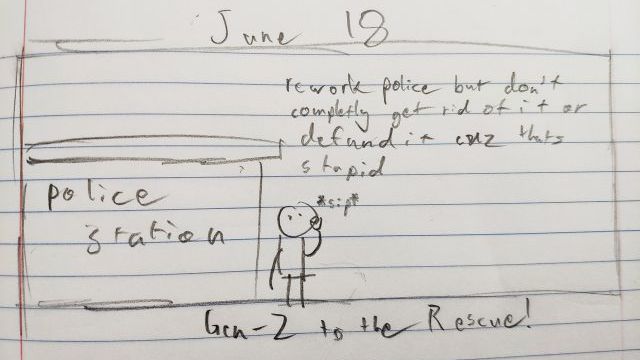 June 18
rework police but don't
completly get rid of it or
defund it cuz thats
stupid
police
station
*sip*
Gen-Z to the Rescue!